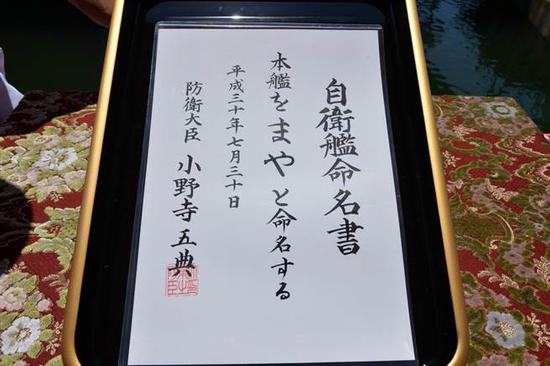 自衛艦命名書
本艦をまやと命名する
平成三十年七月三十日
防衛大臣 小野寺五典